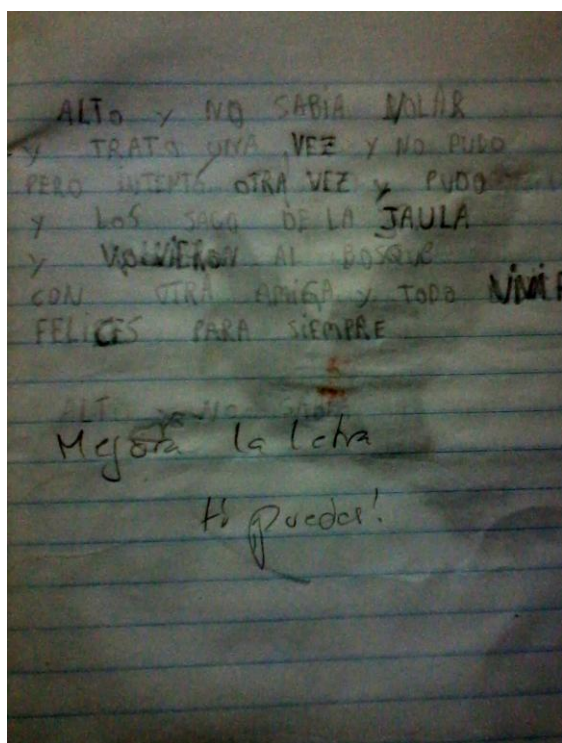 ALTO Y NO SABIA VOLAR
Y TRATO UNA VEZ Y NO PUDO
PERO INTENTÓ OTRA VEZ Y PUDO
Y LOS SACO DE LA JAULA
Y VOLVIERON AL BOSQUE
CON OTRA AMIGA Y TODO VIVIR
FELICES PARA SIEMPRE
ALTO Y NO SABIA
Mejora la letra
tú puedes!